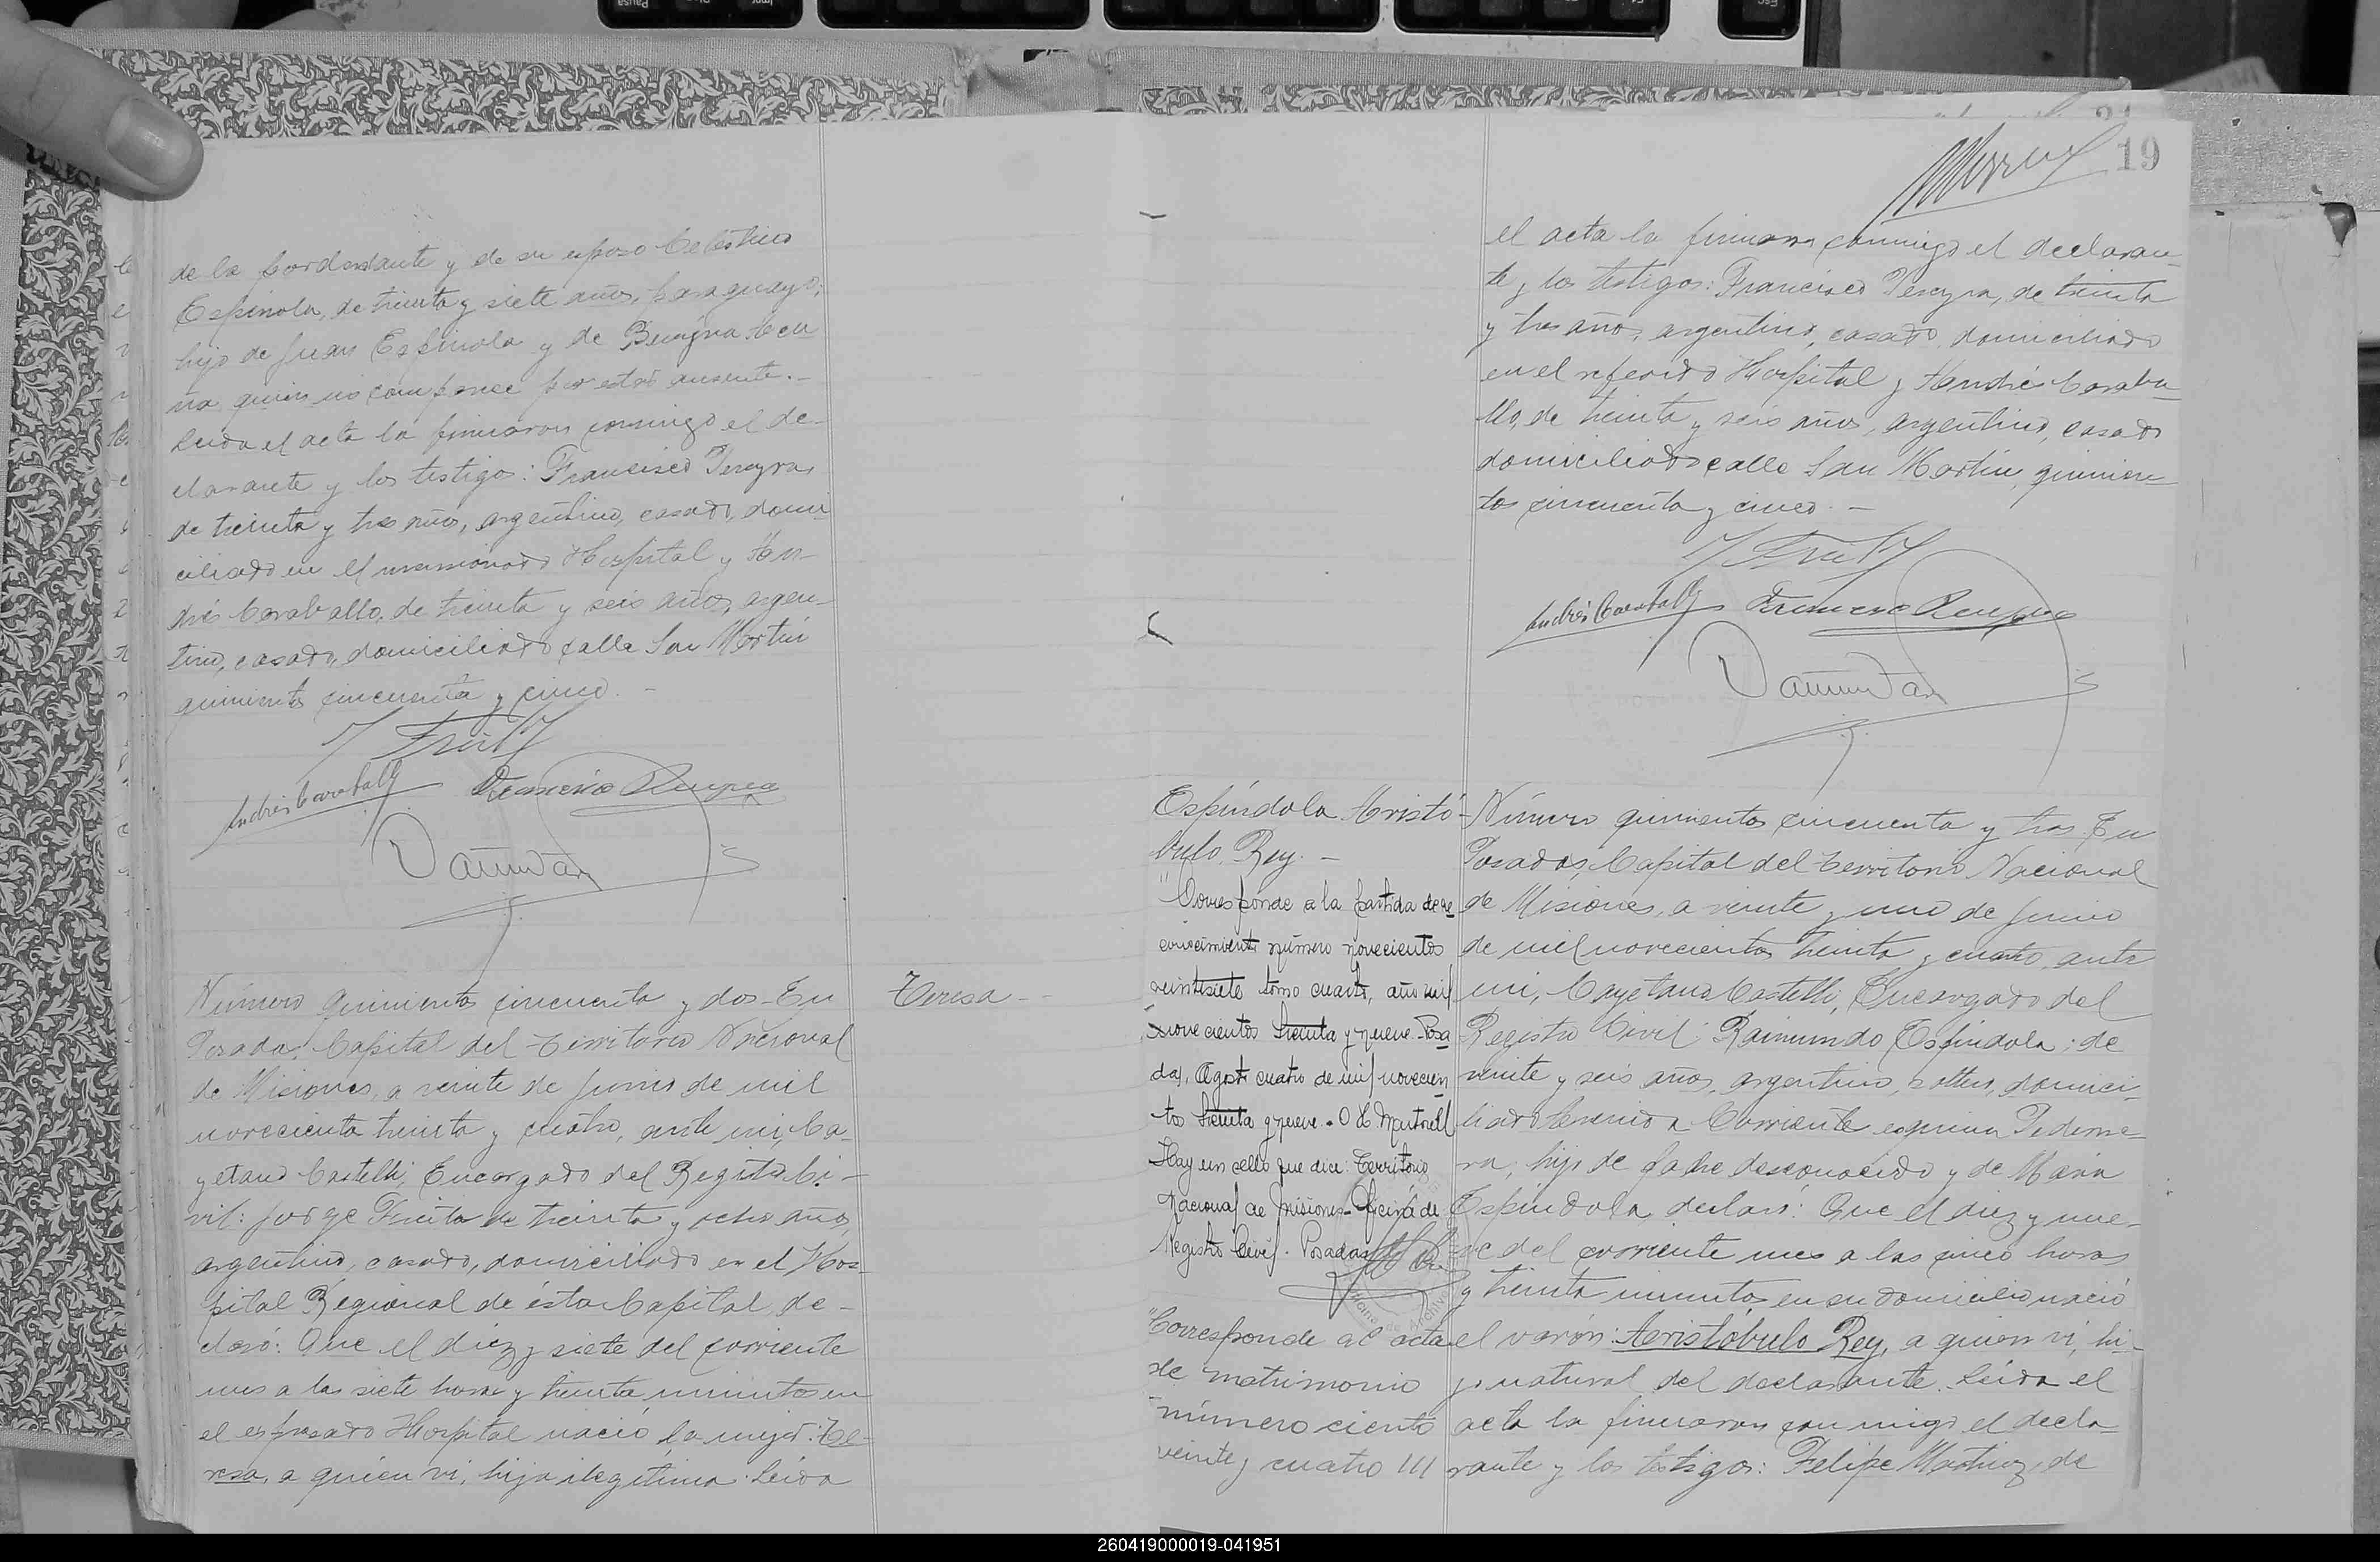 de la fecundante y de su esposo Celestino
Espínola, de treinta y siete años, paraguayo,
hijo de Juan Espínola y de Benigna
quien no comparece por estar ausente.-
Leida el acta la firmaron conmigo el de-
clarante y los testigo: Francisco Pereyra,
de treinta y tres años, argentino, casado, domi-
ciliado en el mensionado Hospital y An-
drés Caraballo, de treinta y seis años, argen-
tino, casado, domiciliado calle San Martín
quinientos cincuenta y cinco.-
Andrés Caraball
Número quinientos cincuenta y dos - En
Posadas, Capital del Territorio Nacional
de Misiones, a veinte de Junio de mil
novecientos treinta y cuatro, ante mi, Ca-
yetano Castelli, Encargado del Registro Ci-
vil: Jorge Freita de treinta y ocho años,
argentino, casado, domiciliado en el Hos-
pital Regional de ésta Capital, de-
claró: Que el diez y siete del corriente
mes a las siete horas y treinta minutos en
el espresado Hospital nació la mujer: Te-
resa, a quien vi, hija ilegítima. Leida
Teresa -
19
el acta la firmaron conmigo el declaran-
te y los testigos: Francisco Pereyra, de treinta
y tres años, argentino, casado, domiciliado
en el referido Hospital y Andrés Caraba-
llo, de treinta y seis años, argentino, casado
domiciliado calle San Martín, quinien-
tos cincuenta y cinco. -
Andrés Caraball
Espíndola Aristó-
bulo Rey. -
"Corresponde a la partida de re
conocimiento número novecientos
veintisiete tomo cuarto, año mil
novecientos treinta y nueve. Posa
das, Agosto cuatro de mil novecien
tos treinta y nueve. - O
Hay un sello que dice: Territorio
Nacional de Misiones - Oficina de
Registro Civil - Posadas
"Corresponde al acta
de matrimonio
número ciento
veinte y cuatro III
Número quinientos cincuenta y tres. En
Posadas, Capital del Territorio Nacional
de Misiones, a veinte y uno de Junio
de mil novecientos treinta y cuatro, ante
mi, Cayetano Castelli, Encargado del
Registro Civil: Raimundo Espíndola, de
veinte y seis años, argentino, soltero, domici-
liado Avenida Corriente esquina Pederne-
ra, hijo de padre desconocido y de María
Espíndola declaró: Que el diez y nue-
ve del corriente mes a las cinco horas
y treinta minutos en su domicilio nació
el varón: Aristóbulo Rey, a quien vi, hi-
jo natural del declarante. Leida el
acta la firmaron conmigo el decla-
rante y los testigos: Felipe Martinez, de
260419000019-041951